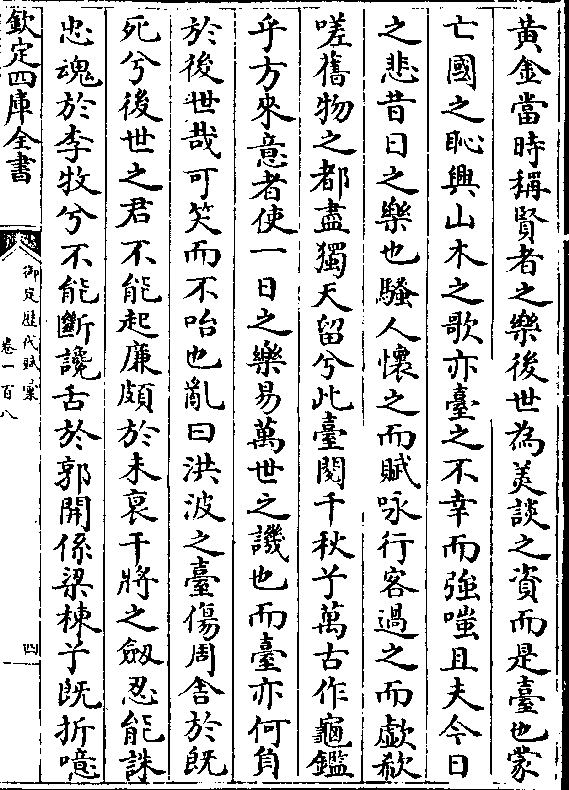 黃金當時稱賢者之樂後世為美談之資而是臺也蒙
亡國之恥興山木之歌亦臺之不幸而強嗤且夫今日
之悲昔日之樂也騷人懷之而賦咏行客過之而歔欷
嗟舊物之都盡獨天留兮此臺閱千秋兮萬古作龜鑑
乎方來意者使一日之樂易萬世之譏也而臺亦何負
於後世哉可笑而不咍也亂曰洪波之臺傷周舍於既
死兮後世之君不能起廉頗於未衰干將之劔忍能誅
忠魂於李牧兮不能斷讒舌於郭開係梁棟兮既折噫
欽定四庫全書
御定歷代賦彙
卷一百八
四